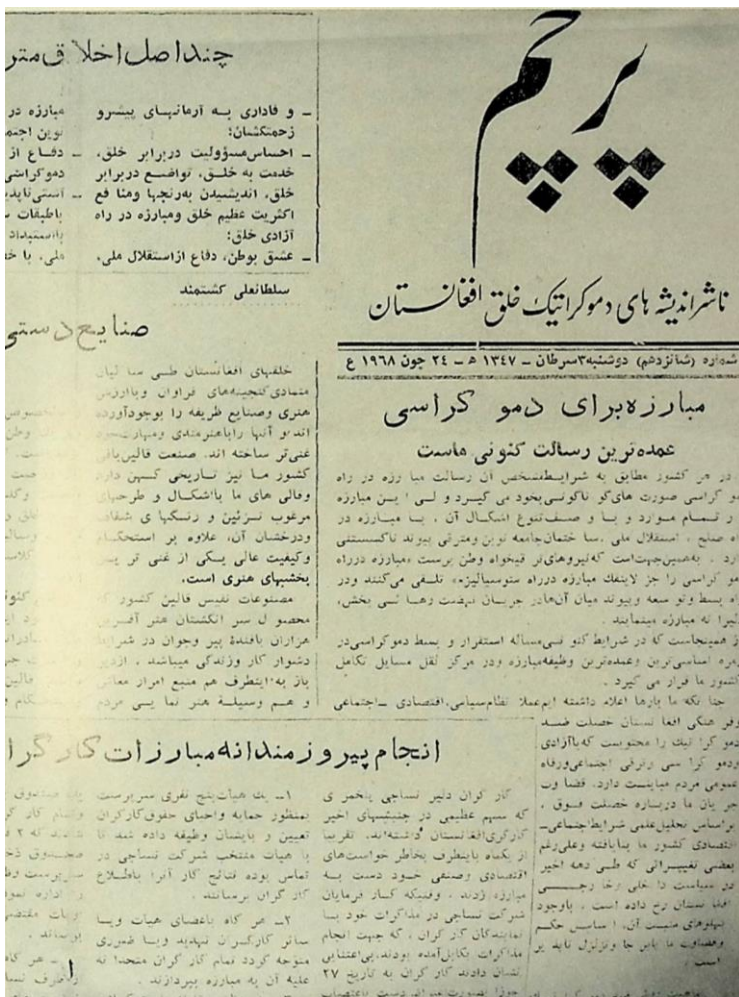 پرچم
ناشر اندیشه های دموکراتیک خلق افغانستان
شماره (شانزدهم) دوشنبه ۳ سرطان ـ ۱۳۴۷ هـ ـ ۲۴ جون ۱۹۶۸ ع
مبارزه برای دمو کراسی
عمده ترین رسالت کنونی ماست
در هر کشور مطابق به شرایط مشخص آن رسالت مبا رزه در راه
مو کراسی صورت های گو ناگونی بخود می گیرد و لـی ا یـن مبارزه
ر تمـام مـورد و بـا و صـف تنوع اشکـال آن ، بـا مبـارزه در
اه صلح ، استقلال ملی ،سا ختمان جامعه نوین ومترقی پیوند ناگسستنی
ارد . به همین جهت است که نیروهای تر قیخواه وطن پرست «مبارزه درراه
مو کراسی را جز لاینفک مبارزه درراه سوسیالیزم» تلـقی می کنند ودر
اه بسط وتو سعه وپیوند میان آن هادر جریـان نهضت رهـا ئـی بخش،
لیرا نه مبارزه مینمایند .
ز همینجاست که در شرایط کنو نـی مساله استقرار و بسط دموکراسی در
زمره اساسی ترین و عمده ترین وظیفه مبارزه ودر مرکز ثقل مسایل تکامل
کشور ما قرار می گیرد .
چنا نکه ما بارها اعلام داشته ایم عملا نظام سیاسی، اقتصادی ـ اجتماعی
وفر هنگی افغا نستان خصلت ضـد
دمو کرا تیک را
ودمو کرا سی وترقی اجتماعی ورفاه
عمومی مردم مباینت دارد. قضا وت
جر یان ما درباره خصلت فـوق ،
براساس تحلیل علمی شرایط اجتماعی ـ
اقتصادی کشور ما بنا یافته وعلی رغم
بعضی تغییـراتی که طـی دهه اخیر
دو سیاست دا خلی وخا رجـــی
افغا نستان رخ داده است . باوجود
پهلوهای مثبت آن،
است .
چند اصل اخلا ق متر
ـ و فاداری بـه آرمانهـای پیشرو
زحمتکشان؛
ـ احساس مسؤولیت دربرابر خلق،
خدمت به خلـق، تواضـع دربرابر
خلق، اندیشیدن به رنجها ومنا فع
اکثریت عظیم خلق ومبارزه در راه
آزادی خلق؛
ـ عشق بوطن، دفاع از استقلال ملی،
مبارزه در
نوین اجتم
ـ دفـاع از
دموکراسی
ـ آشتی ناپذ
باطبقات
بااستبداد
ملی، با خ
سلطانعلی کشتمند
صنایع دستی
خلقهای افغانستان طـی سا لیان
متمادی گنجینه های فراوان وباارزش
هنری وصنایع ظریفه را بوجودآورده
اند و آنها راباهنرمندی ومهارت خود
غنی تر ساخته اند. صنعت قالین بافی
کشور مـا نیز تاریخی کـهن دارد
وقالی های ما بااشکـال و طرحهای
مرغوب تـزئین و رنـگها ی شفاف
ودرخشان آن، علاوه بر استحکـام
وکیفیت عالی یکـی از غنی تر ین
بخشهای هنری است.
مصنوعات نفیس قالین کشور که
محصو ل سر انگشتان هنر آفرین
هزاران بافندۀ پیر وجوان در شرایط
دشوار کار وزندگی میباشد ،
باز به اینطرف هم منبع امرار معاش
و هـم وسیلـۀ هنر نما یـی مردم
انجام پیروزمندانه مبارزات کار گرا
کار گران دلیر نساجی پلخمر ی
که سهم عظیمی در جنبشهای اخیر
کارگری افغانستان داشته اند. تقریبا
از یکماه باینطرف بخاطر خواست های
اقتصادی وصنفی خـود دست بـه
مبارزه زدند . وقتیکه کـار فرمایان
شرکت نساجی در مذاکرات خود بـا
نمایندگان کار گران ، که جهت انجام
مذاکرات
نشان دادند کار گران به تاریخ ۲۷
جوزا
۱ـ یک هیات پنج نفری سرپرست
بمنظور حمایه واحیای حقوق کارگران
تعیین و بایشان وظیفه داده شد تا
با هیات منتخب شرکت نساجی در
تماس بوده نتائج کار آنرا باطـلاع
کار گران برسانند .
۲ـ هر گاه باعضای هیات ویـا
سائر کارگـران تهدید ویـا ضرری
متوجه گردد تمام کار گران متحدا نه
علیه آن به مبارزه بپردازند .